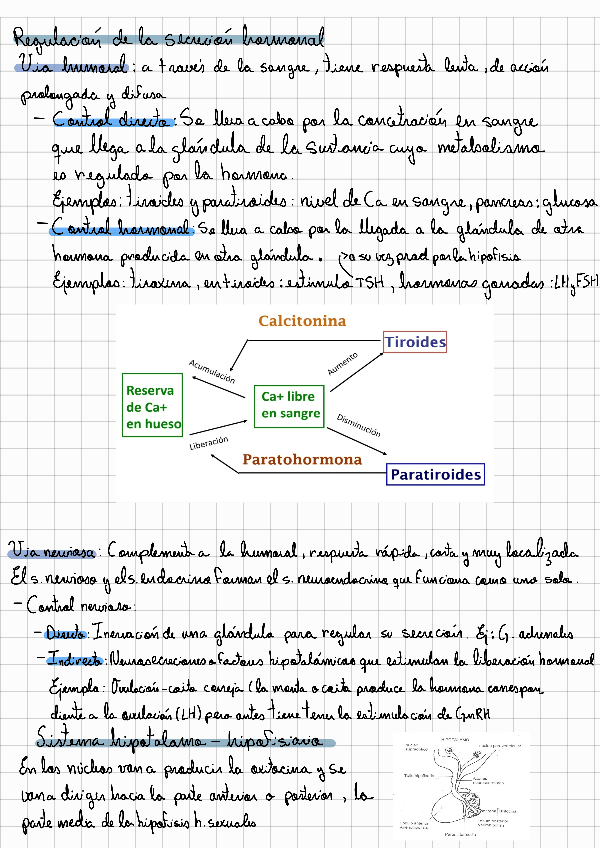 Regulación de la secreción hormonal
Vía humoral: a través de la sangre, tiene respuesta lenta, de acción
prolongada y difusa
- Control directo: Se lleva a cabo por la concetración en sangre
que llega a la glándula de la sustancia cuyo metabolismo
es regulado por la hormona.
Ejemplos: tiroides y paratiroides: nivel de Ca en sangre, pancreas: glucosa
- Control hormonal: Se lleva a cabo por la llegada a la glándula de otra
hormona producida en otra glándula.
a su vez prod por la hipofisis
Ejemplos: tiroxina, en tiroides: estimula TSH, hormonas gonadas: LH y FSH
Calcitonina
Tiroides
Acumulación
Aumento
Reserva
de Ca+
en hueso
Ca+ libre
en sangre
Liberación
Disminución
Paratohormona
Paratiroides
Vía nerviosa: Complementa a la humoral, respuesta rápida, corta y muy localizada
El s. nervioso y el s. endocrino forman el s. neuroendocrino que funciona como uno solo.
- Control nervioso:
- Directo: Inervación de una glándula para regular su secreción. Ej: G. adrenales
- Indirecto: Neurosecreciones o factores hipotalámicos que estimulan la liberación hormonal
Ejemplo: Ovulación-coito coneja (la monta o coito produce la hormona correspon
diente a la ovulación (LH) pero antes tiene tener la estimulación de GnRH
Sistema hipotalamo - hipofisiario
En los núcleos van a producir la oxitocina y se
van a dirigir hacia la parte anterior o posterior, la
parte media de la hipofisis h. sexuales
HIPOTALAMO